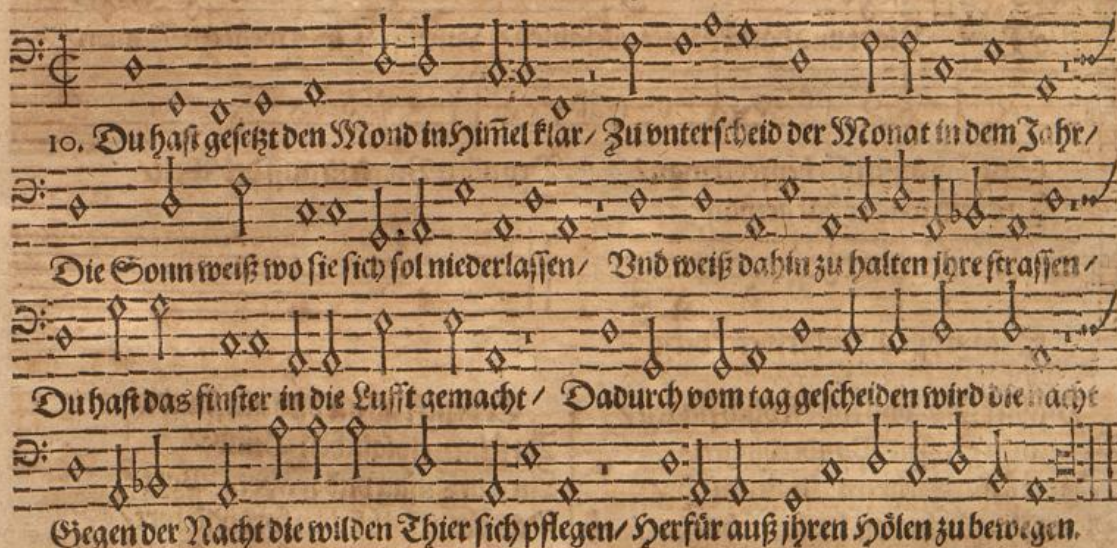 10. Du hast gesetzt den Mond in Him̃el klar/ Zu vnterscheid der Monat in dem Jahr/
Die Sonn weiß wo sie sich sol niederlassen/ Vnd weiß dahin zu halten jhre strassen/
Du hast das finster in die Lufft gemacht/ Dadurch vom tag gescheiden wird die nacht
Gegen der Nacht die wilden Thier sich pflegen/ Herfür auß jhren Hölen zu bewegen.